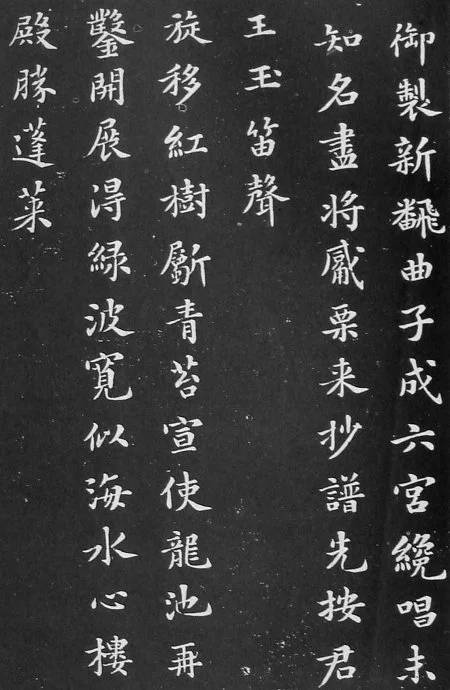 御製新飜曲子成六宮纔唱未
知名盡將觱栗来抄譜先按君
王玉笛聲
旋移紅樹斸青苔宣使龍池再
鑿開展淂緑波寛似海水心樓
殿勝蓬萊